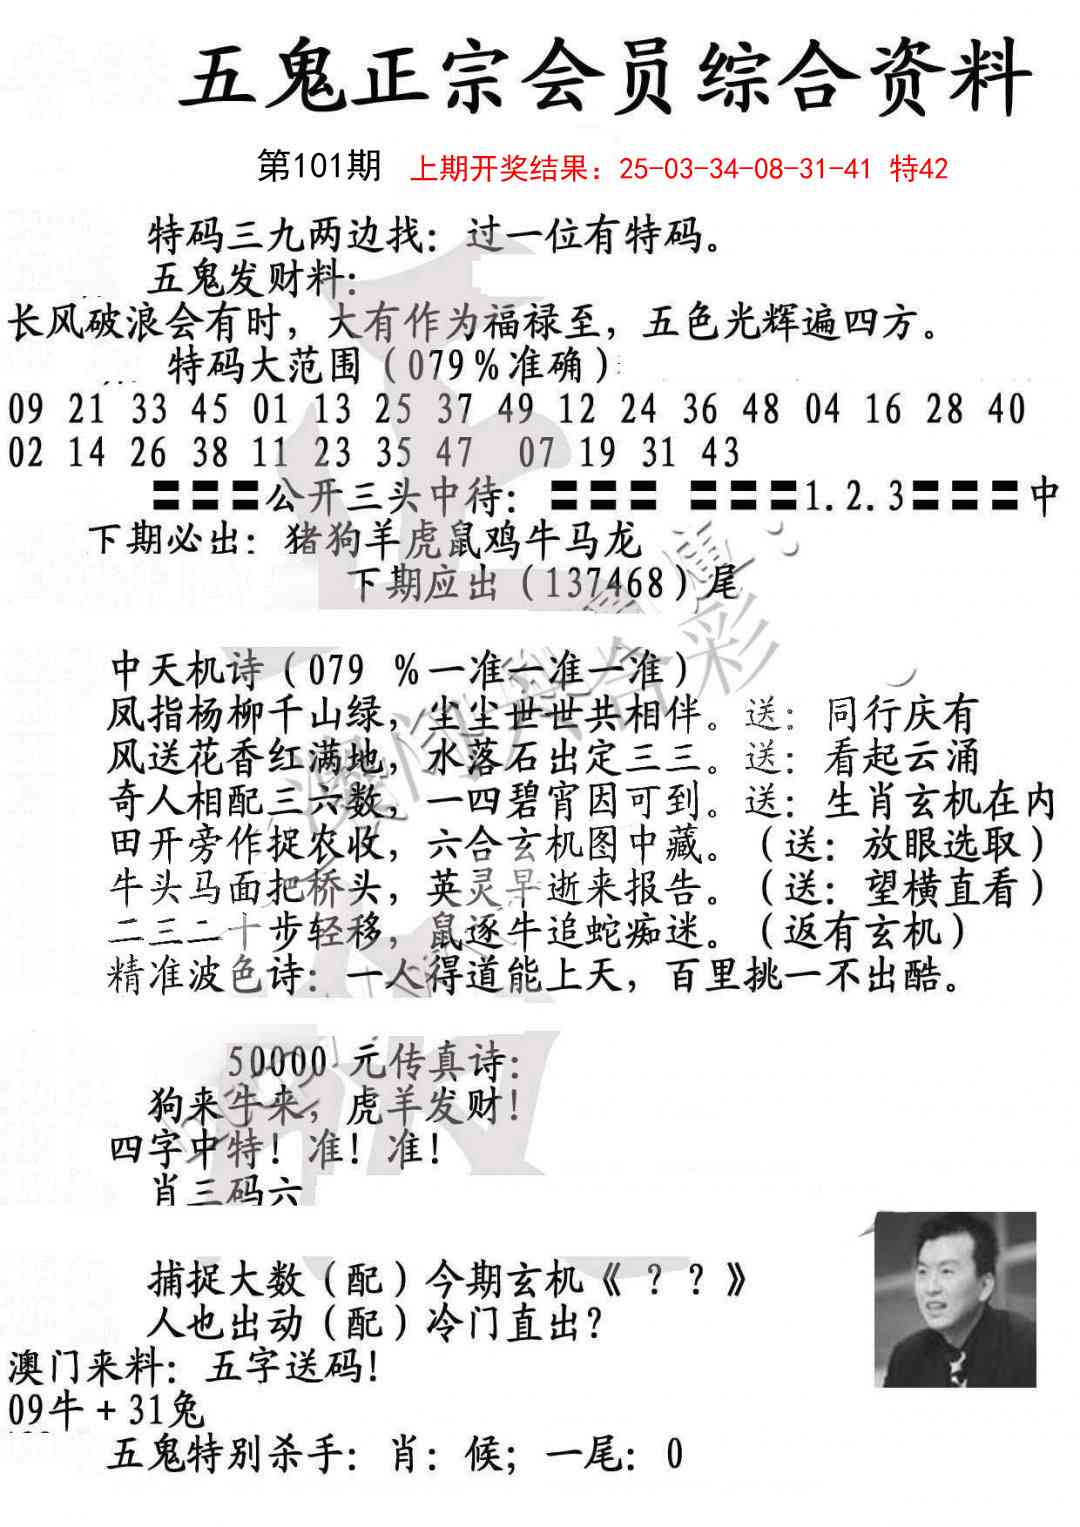 五鬼正宗会员综合资料
第101期 上期开奖结果：25-03-34-08-31-41 特42
特码三九两边找：过一位有特码。
五鬼发财料：
长风破浪会有时，大有作为福禄至，五色光辉遍四方。
特码大范围（079％准确）
09 21 33 45 01 13 25 37 49 12 24 36 48 04 16 28 40
02 14 26 38 11 23 35 47 07 19 31 43
〓〓〓公开三头中待：〓〓〓 〓〓〓1.2.3〓〓〓中
下期必出：猪狗羊虎鼠鸡牛马龙
下期应出（137468）尾
中天机诗（079 ％一准一准一准）
凤指杨柳千山绿，尘尘世世共相伴。送：同行庆有
风送花香红满地，水落石出定三三。送：看起云涌
奇人相配三六数，一四碧宵因可到。送：生肖玄机在内
田开旁作捉农收，六合玄机图中藏。（送：放眼选取）
牛头马面把桥头，英灵早逝来报告。（送：望横直看）
二三二十步轻移，鼠逐牛追蛇痴迷。（返有玄机）
精准波色诗：一人得道能上天，百里挑一不出酷。
50000 元传真诗：
狗来牛来，虎羊发财！
四字中特！准！准！
肖三码六
捕捉大数（配）今期玄机《 ？？》
人也出动（配）冷门直出？
澳门来料：五字送码！
09牛＋31兔
五鬼特别杀手：肖：候；一尾：0
澳门六合彩